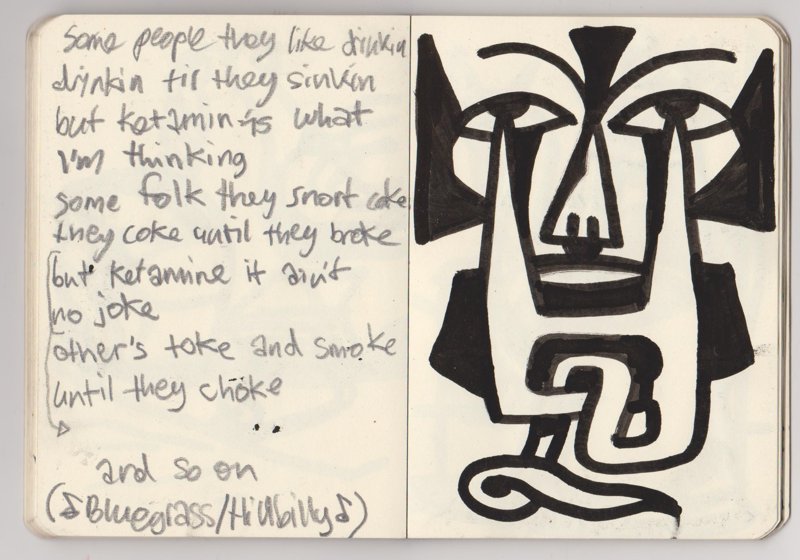 some people they like drinkin
drinkin til they sinkin
but ketamin is what
I'm thinking
some folk they snort coke
they coke until they broke
but ketamine it ain't
no joke
other's toke and smoke
until they choke
and so on
(♪Bluegrass/Hillbilly♪)